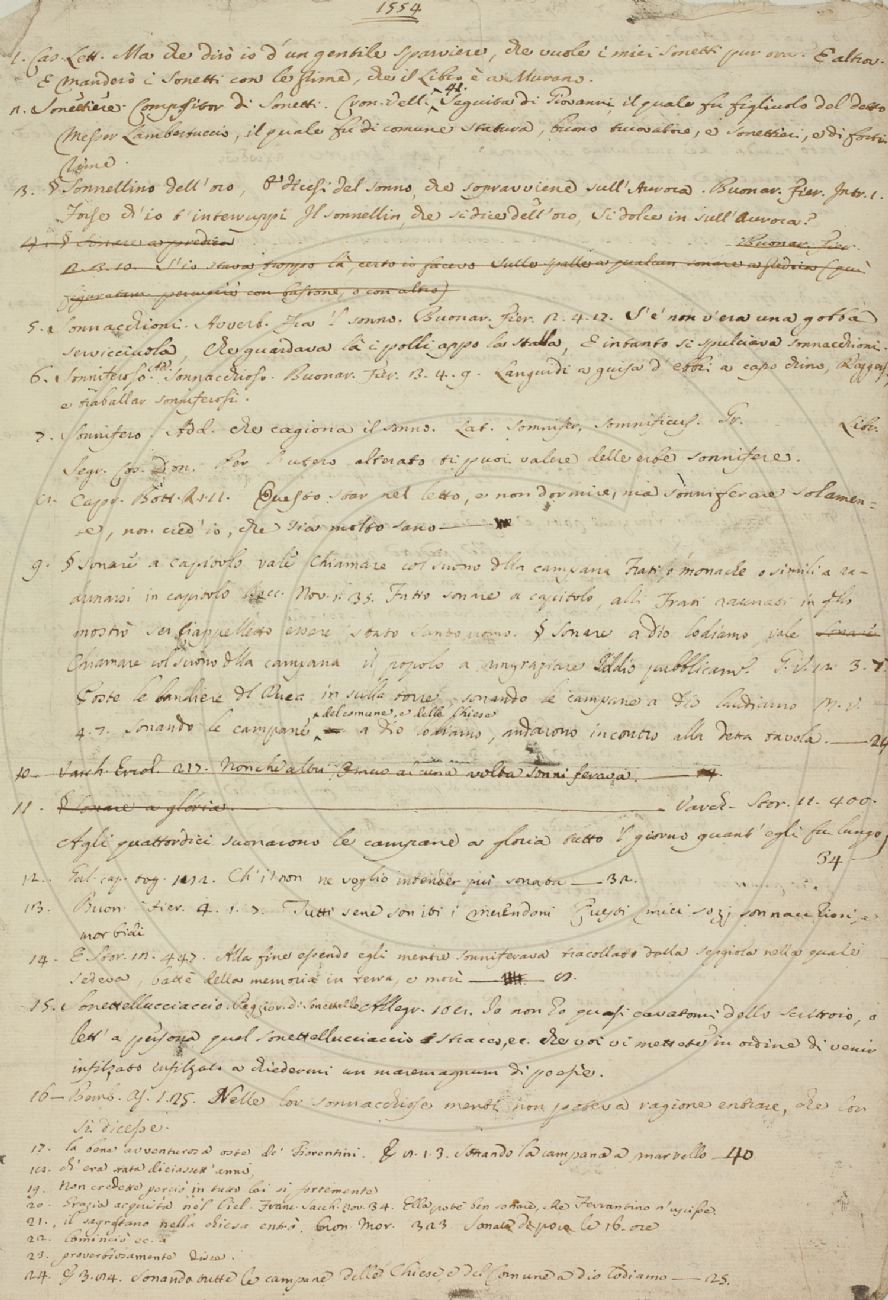 1554
1. Cas. Lett. Ma che dirò io d'un gentile sparviere, che vuole i miei sonetti pur ora. E altro.
E manderò i Sonetti con le rime, che il Libro è a Murano.
2. Sonettiere. Compositor di Sonetti. Cron. Vell. 41. Seguita di Giovanni, il quale fu figliuolo del detto
Messer Lambertuccio, il quale fu di comune statura, buono trovatore, e sonettieri, e di forti
rime.
13. § Sonnellino dell'oro, dicesi del sonno, che sopravviene sull'Aurora. Buonar. Fier. Intr. 1.
Forse ch'io t'interruppi Il sonnellin, che si dice dell'oro, Sì dolce in sull'aurora?
4. § Sonare a predica Buonar. Fier.
2. 3. 10. S'io stava troppo là, certo io faceva Sulle spalle a qualcun sonare a predica (qui
figuratam. percuoter con bastone, o con altro)
5. Sonnacchioni. Avverb. Fra 'l sonno. Buonar. Fier. 2. 4. 12. S'e' non v'era una gobba
servicciuola, Che guardava là i polli appo la stalla, E intanto si spulciava sonnacchioni.
6. Sonniferoso. Ad. Sonnacchioso. Buonar. Fier. 3. 4. 9. Languidi a guisa d'ebbri a capo chino,
e traballar sonniferosi.
7. Sonnifero. Add. che cagiona il sonno. Lat. somnifer, somnificus. Gr. Libr.
Segr. Cos. Don. Per l'utero alterato ti puoi valere delle erbe sonnifere.
8. Capr. Bott. 2. 21. Questo star nel letto, e non dormire, ma sonniferare solamen=
te, non cred'io, che sia molto sano
9. § Sonare a capitolo vale Chiamare col suono della campana Frati, o monache o simili a ra=
dunarsi in capitolo Bocc. Nov. 1. 35. Fatto sonare a capitolo, alli Frati raunati in quello
mostrò ser Ciappelletto essere stato santo uomo. § Sonare a Dio lodiamo, vale sonare
Chiamare col suono della campana il popolo a ringraziare Iddio pubblicam. G. V. 12. 3. 7.
Poste le bandiere del Duca in sulla torre, sonando le campane a Dio laudiamo M. V.
4. 7. Sonando le campane del comune, e delle chiese a Dio lodiamo, andarono incontro alla detta tavola. 24
10. Varch. Ercol. 217. Nonchè altri, Omero alcuna volta sonniferava.
11. § Sonare a gloria. Varch. Stor. 11. 400.
Agli quattordici suonarono le campane a gloria tutto 'l giorno quant'egli fu lungo,
34
12. Gal. cap. tog. 182. Ch'i' non ne voglio intender più sonata 32.
13. Buon. Fier. 4. 1. 7. Tutti sene son iti i merendoni Questi miei sozj sonnacchioni, e
morbidi
14. E Stor. 12. 447. Alla fine essendo egli mentre sonniferava tracollato dalla seggiola nella quale
sedeva, battè della memoria in terra, e morì 8.
15. Sonettellucciaccio. Peggior. di Sonettello Allegr. 108. Io non ho quasi cavatomi dello scrittoio, o
lett' a persona quel sonettellucciaccio stracco, ec. che voi vi mettete in ordine di venir
infilzato infilzato a chiedermi un maremagnum di poesie.
16 Bemb. As. 1. 25. Nelle lor sonnacchiose menti non poteva ragione entrare, che lor
si dicesse.
17. la bene avventurosa oste de' Fiorentini. E 8. 1. 3. Sonando la campana a martello 40
18. ch'era stata diciassett'anni
19. Non credette perciò in tutto lui sì fortemente
20. Grazia acquista nel Ciel. Franc. Sacch. nov. 34. Ella potè ben sonare, che Ferrantino n'uscisse.
21. il sagrestano nella chiesa entrò. buon Mor. 323 Sonate dipoi le 16. ore
22. Cominciò ec. a
23. proverbiosamente disse.
24. E 3. 84. Sonando tutte le campane delle Chiese e del Comune a Dio lodiamo 25.